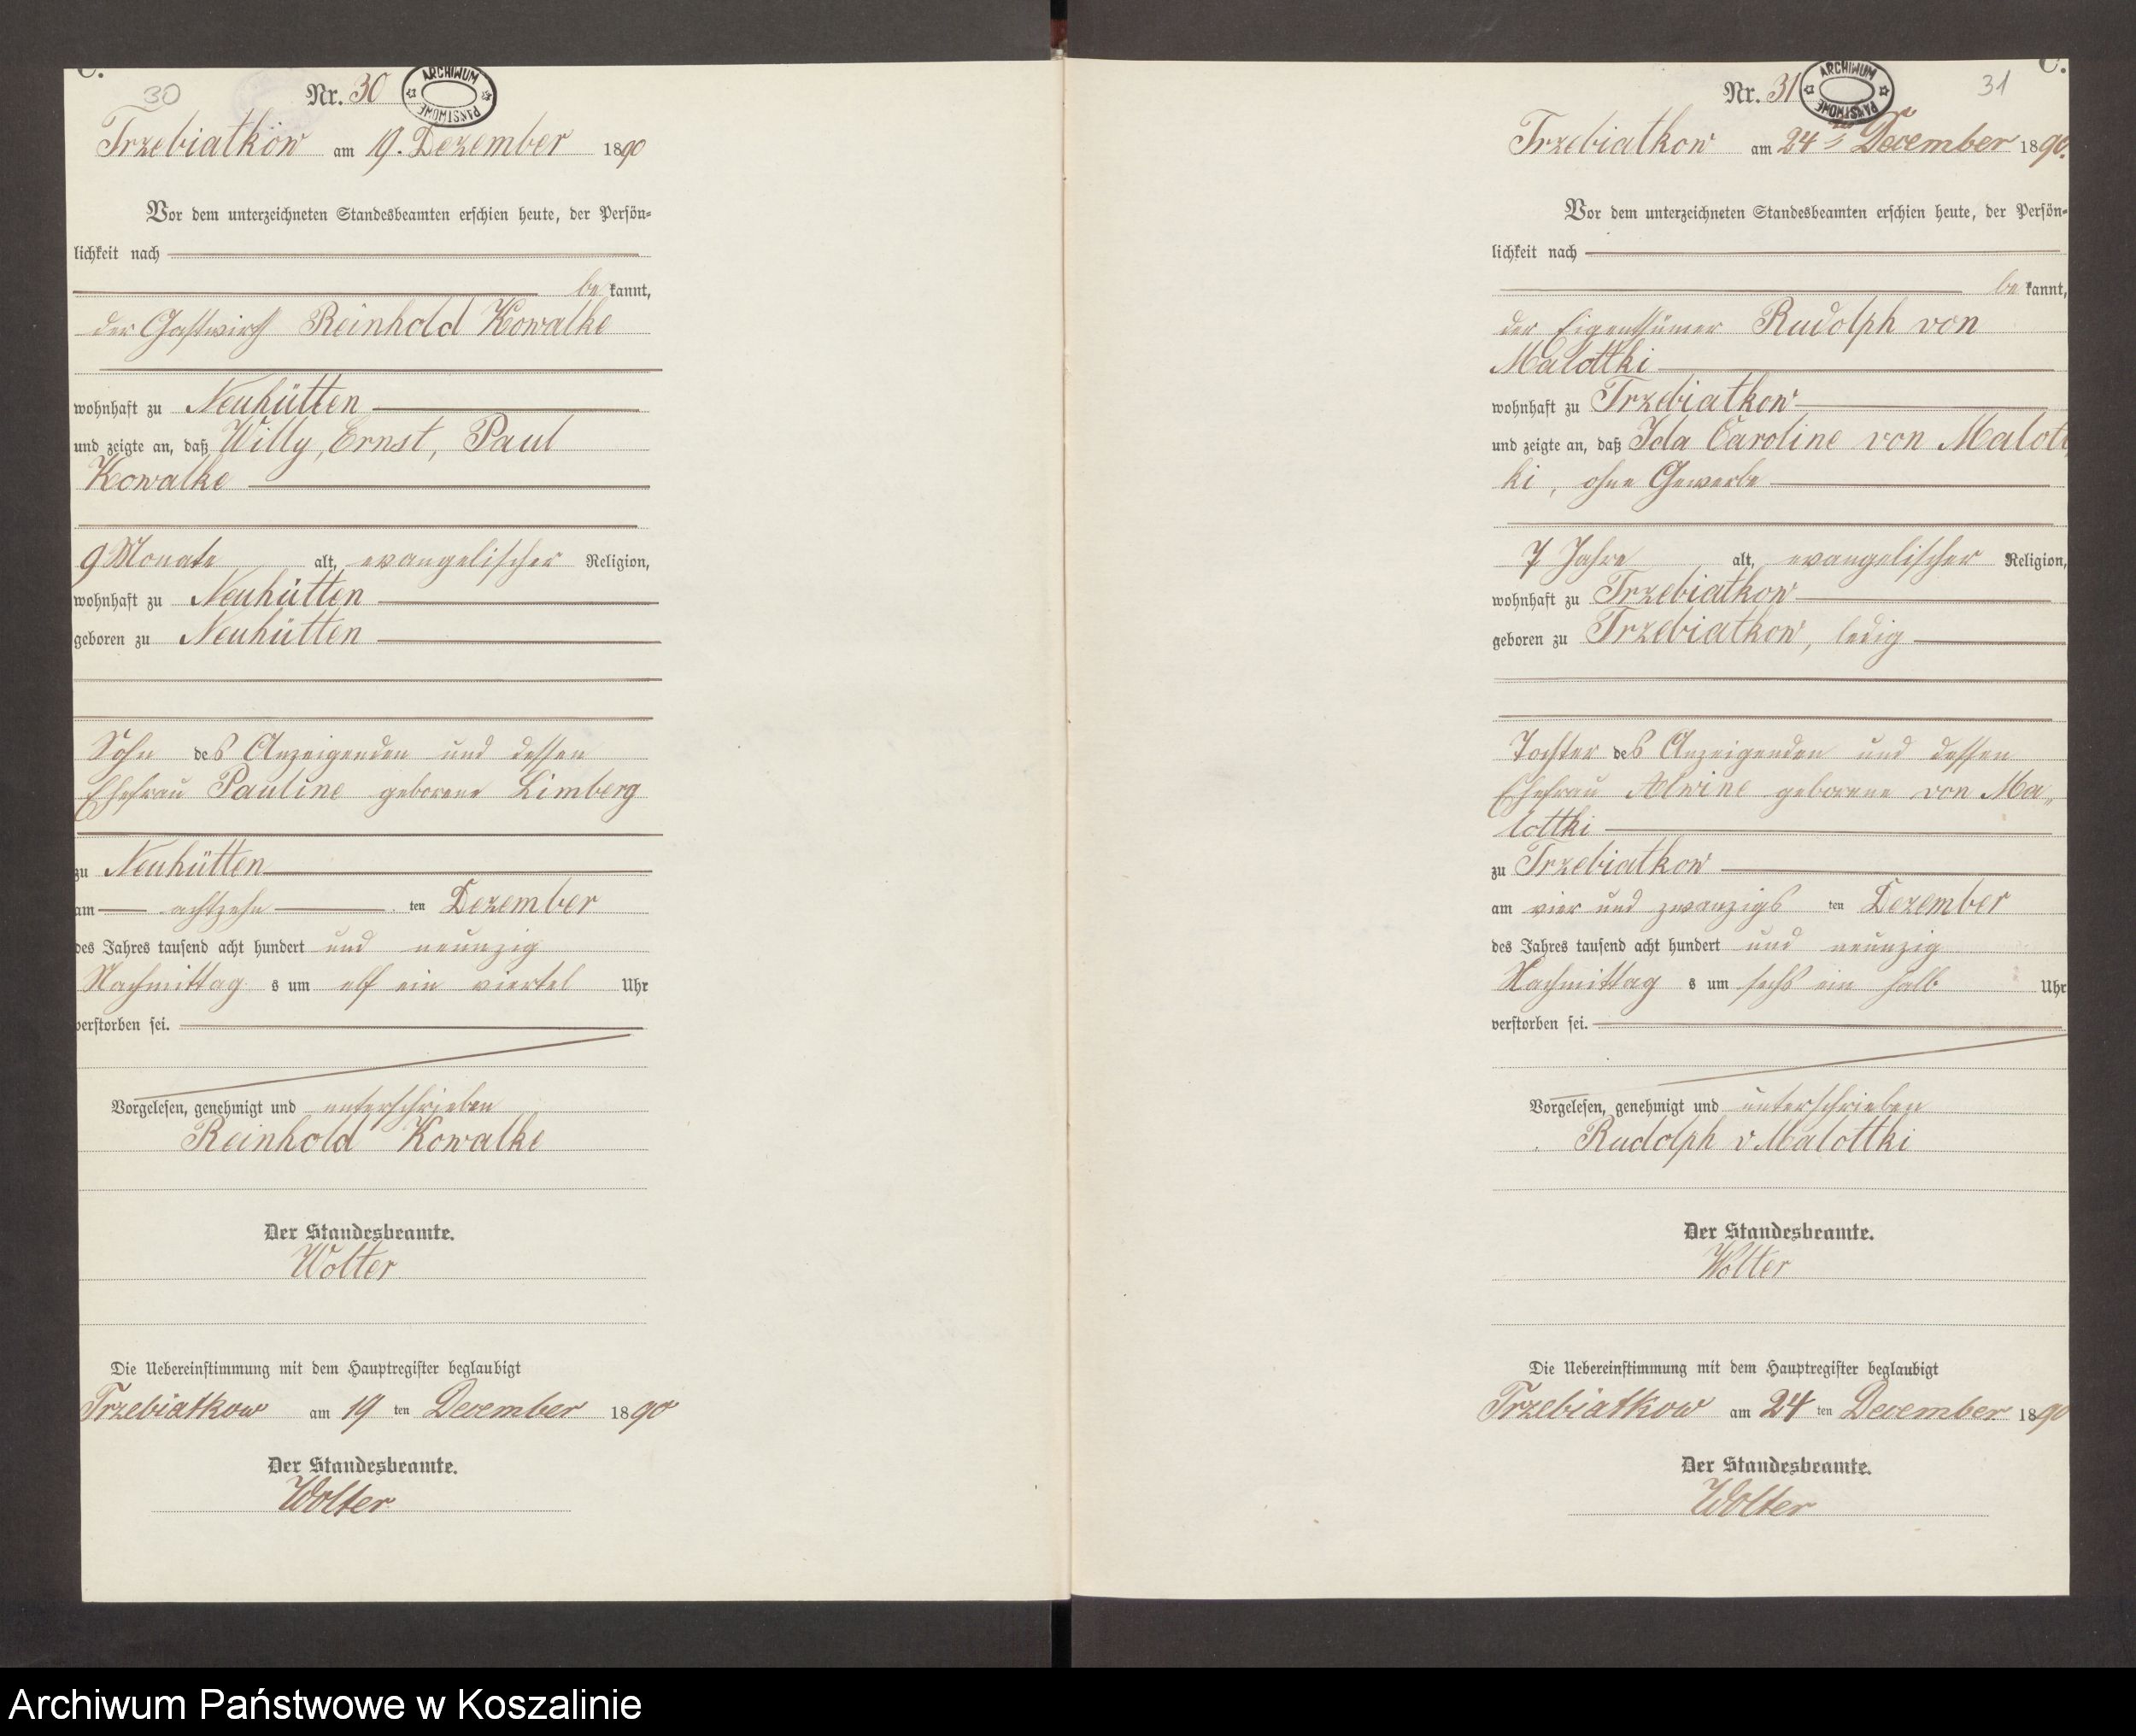 C.
30
Nr. 30
ARCHIWUM PAŃSTWOWE
Trzebiatkow am 19. Dezember 1890
Vor dem unterzeichneten Standesbeamten erschien heute, der Persön-
lichkeit nach
be kannt,
der Gastwirth Reinhold Kowalke
wohnhaft zu Neuhütten
und zeigte an, daß Willy, Ernst, Paul
Kowalke
9 Monate alt, evangelischer Religion,
wohnhaft zu Neuhütten
geboren zu Neuhütten
Sohn des Anzeigenden und dessen
Ehefrau Pauline geborene Limberg
zu Neuhütten
am achtzehn ten Dezember
des Jahres tausend acht hundert und neunzig
Nachmittag s um elf ein viertel Uhr
verstorben sei.
Vorgelesen, genehmigt und unterschrieben
Reinhold Kowalke
Der Standesbeamte.
Wolter
Die Uebereinstimmung mit dem Hauptregister beglaubigt
Trzebiatkow am 19 ten December 1890
Der Standesbeamte.
Wolter
C.
31
Nr. 31
ARCHIWUM PAŃSTWOWE
Trzebiatkow am 24 December 1890.
Vor dem unterzeichneten Standesbeamten erschien heute, der Persön-
lichkeit nach
be kannt,
der Eigenthümer Rudolph von
Malottki
wohnhaft zu Trzebiatkow
und zeigte an, daß Ida Caroline von Malott
ki, ohne Gewerbe
7 Jahre alt, evangelischer Religion,
wohnhaft zu Trzebiatkow
geboren zu Trzebiatkow, ledig
Tochter des Anzeigenden und dessen
Ehefrau Alwine geborene von Ma„
lottki
zu Trzebiatkow
am vier und zwanzigs ten Dezember
des Jahres tausend acht hundert und neunzig
Nachmittag s um sechs ein halb Uhr
verstorben sei.
Vorgelesen, genehmigt und unterschrieben
Rudolph v Malottki
Der Standesbeamte.
Wolter
Die Uebereinstimmung mit dem Hauptregister beglaubigt
Trzebiatkow am 24 ten December 1890
Der Standesbeamte.
Wolter
Archiwum Państwowe w Koszalinie